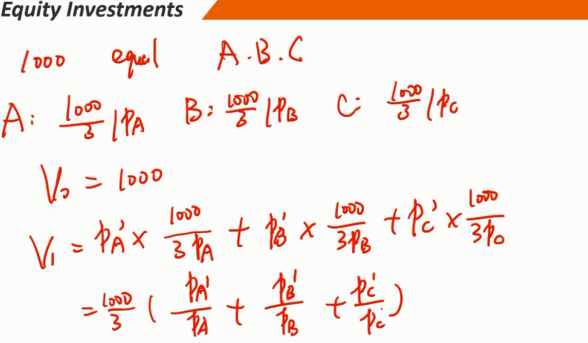 Equity Investments
1000 equal A.B.C
A: 1000/3 / PA B: 1000/3 / PB C: 1000/3 / PC
V0 = 1000
V1 = PA' × 1000/3PA + PB' × 1000/3PB + PC' × 1000/3PC
= 1000/3 ( PA'/PA + PB'/PB + PC'/PC )